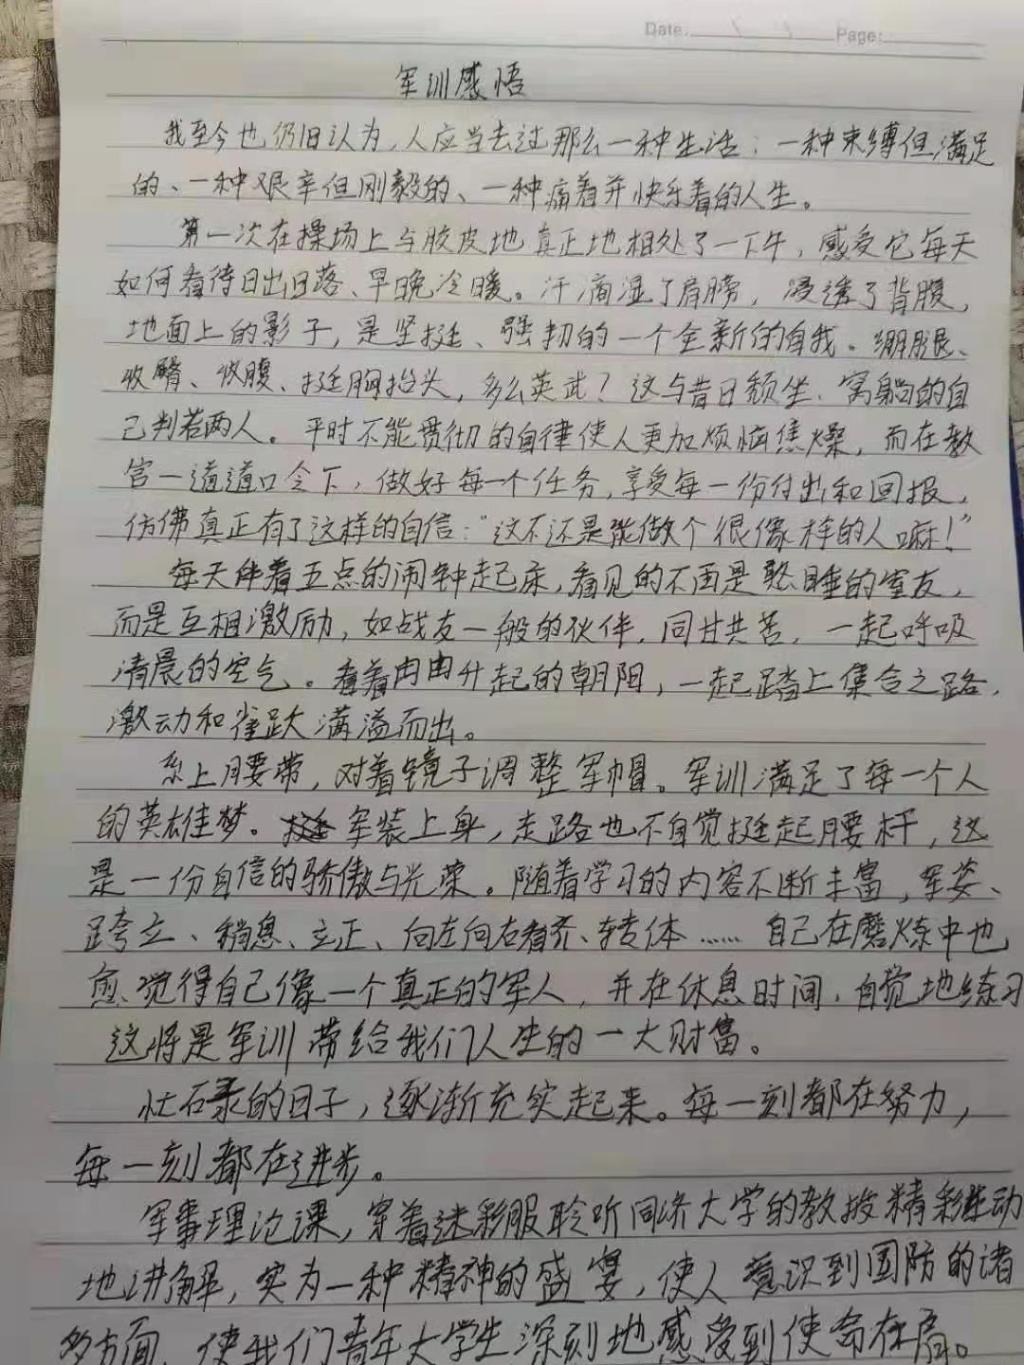 Date: Page:
军训感悟
我至今也仍旧认为，人应当去过那么一种生活：一种束缚但满足
的、一种艰辛但刚毅的、一种痛着并快乐着的人生。
第一次在操场上与胶皮地真正地相处了一下午，感受它每天
如何看待日出日落、早晚冷暖。汗滴湿了肩膀，浸透了背腹，
地面上的影子，是坚挺、强韧的一个全新的自我。绷腿、
收臀、收腹、挺胸抬头，多么英武？这与昔日颓坐、窝躺的自
己判若两人。平时不能贯彻的自律使人更加烦恼焦燥，而在教
官一道道口令下，做好每一个任务，享受每一份付出和回报，
仿佛真正有了这样的自信：“这不还是能做个很像样的人嘛！”
每天伴着五点的闹钟起床，看见的不再是憨睡的室友，
而是互相激励，如战友一般的伙伴，同甘共苦，一起呼吸
清晨的空气。看着冉冉升起的朝阳，一起踏上集合之路，
激动和雀跃满溢而出。
系上腰带，对着镜子调整军帽。军训满足了每一个人
的英雄梦。军装上身，走路也不自觉挺起腰杆，这
是一份自信的骄傲与光荣。随着学习的内容不断丰富，军姿、
跨立、稍息、立正、向左向右看齐、转体……自己在磨炼中也
愈觉得自己像一个真正的军人，并在休息时间，自觉地练习
这将是军训带给我们人生的一大财富。
忙碌的日子，逐渐充实起来。每一刻都在努力，
每一刻都在进步。
军事理论课，穿着迷彩服聆听同济大学的教授精彩生动
地讲解，实为一种精神的盛宴，使人意识到国防的诸
多方面，使我们青年大学生深刻地感受到使命在肩。